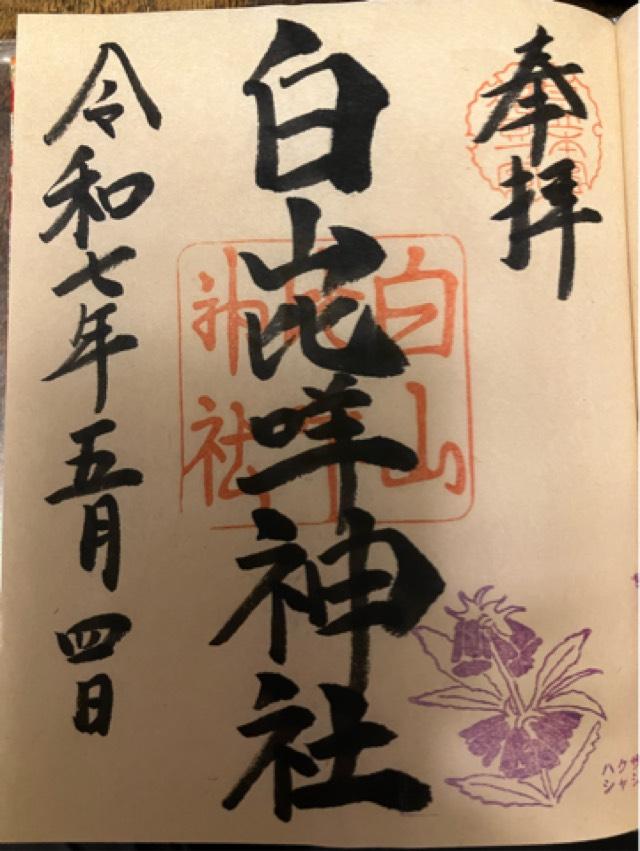 奉拝
白山比咩神社
令和七年五月四日
白山
神社
ハク
シャ